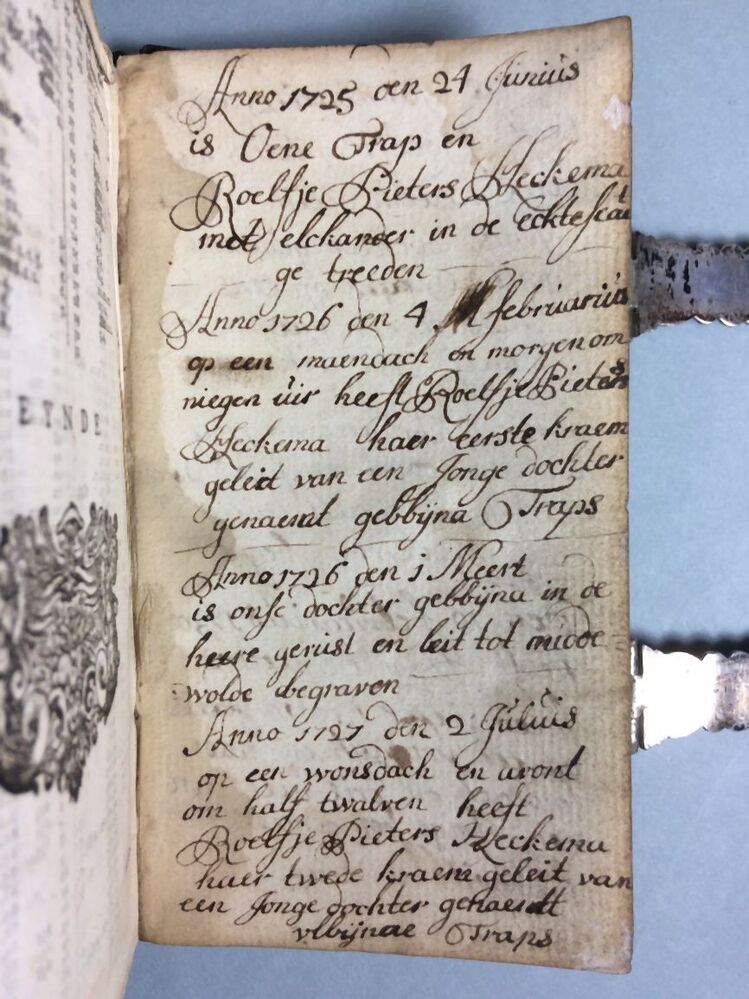 EYNDE
Anno 1725 den 24 Junius
is Oene Trap en
Roelfje Pieters Heckema
met elckander in de echtestat
ge treeden
Anno 1726 den 4 februarius
op een maendach en morgen om
niegen uir heeft Roelfje Pieters
Heckema haer eerste kraem
geleit van een Jonge dochter
genaemt gebbijna Traps
Anno 1726 den 1 Meert
is onse dochter gebbijna in de
heere gerust en leit tot midde=
wolde begraven
Anno 1727 den 2 Juluis
op een wonsdach en avont
om half twalven heeft
Roelfje Pieters Heckema
haer twede kraem geleit van
een Jonge dochter genaemt
Traps